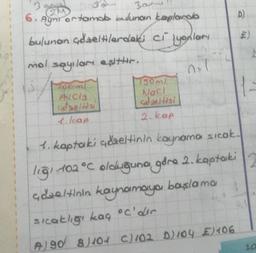 6. Aynı ortamda bulunan kaplarda
bulunan çözeltilerdeki Cl⁻ iyonları
mol sayıları eşittir.
n.1
AlCl3
çözeltisi
1. kap
150 ml
NaCl
çözeltisi
2. kap
1. kaptaki çözeltinin kaynama sıcak-
lığı 102 °C olduğuna göre 2. kaptaki
çözeltinin kaynamaya başlama
sıcaklığı kaç °C'dir
A) 90 B) 101 C) 102 D) 104 E) 106
D)
E)